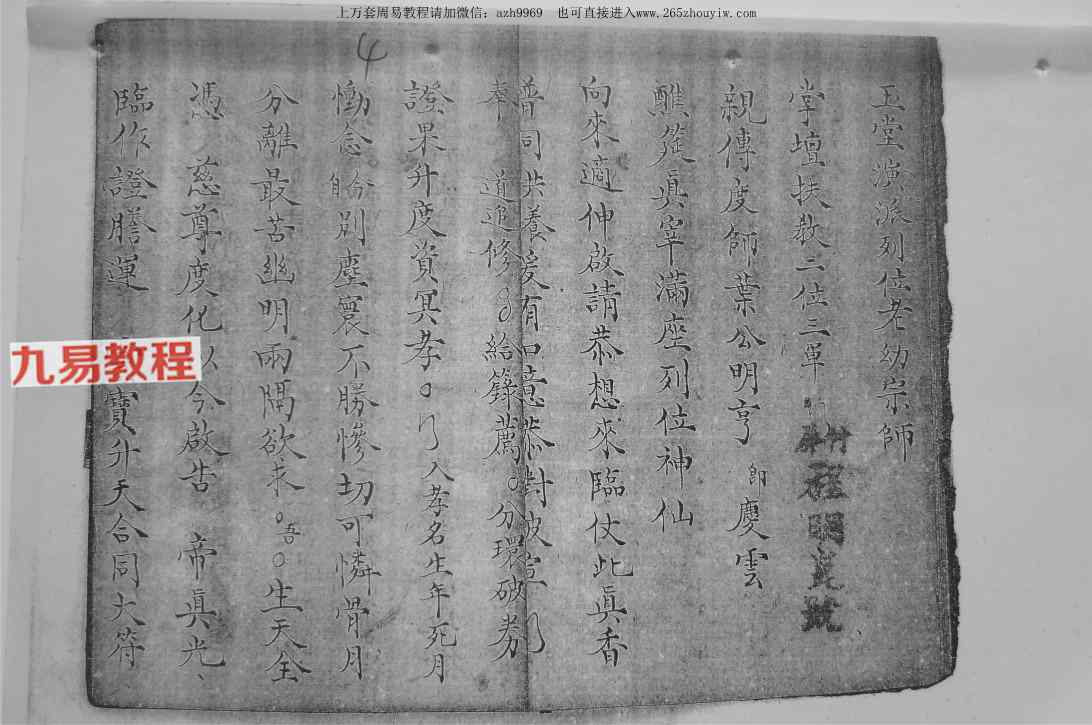 上万套周易教程请加微信：azh9969　也可直接进入www.265zhouyiw.com
4
玉堂演派列位老幼宗師
掌壇扶教二位三軍
程明
親傳度師葉公明亨 郎慶雲
醮筵真宰滿座列位神仙
向來適伸啟請恭想來臨仗此真香
普同共養爰有口意恭對披宣
奉 道追修 給籙薦 分環破券
證果升度資冥孝 入孝名生年死月
慟念 別塵寰不勝慘切可憐骨月
分離最苦幽明兩隔欲求 吾 生天全
憑 慈尊度化以今啟告 帝真光
臨作證謄運 寶升天合同大符
九易教程